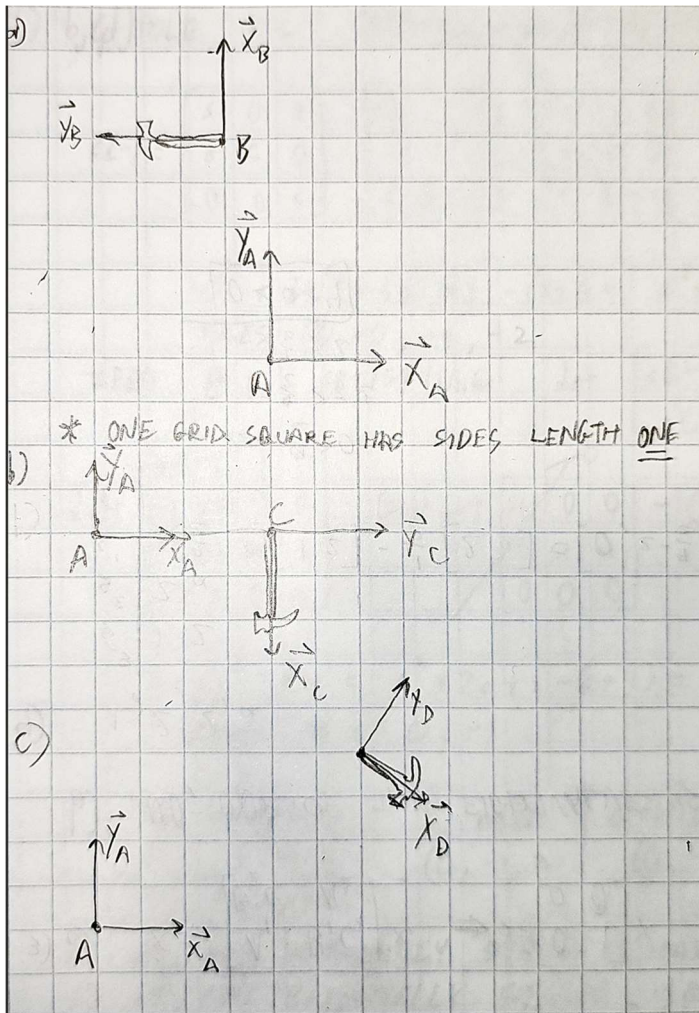 a)
X⃗_B
Y⃗_B
B
Y⃗_A
A
X⃗_A
* ONE GRID SQUARE HAS SIDES LENGTH ONE
b)
Y⃗_A
A
X⃗_A
C
Y⃗_C
X⃗_C
Y_D
c)
X⃗_D
Y⃗_A
A
X⃗_A